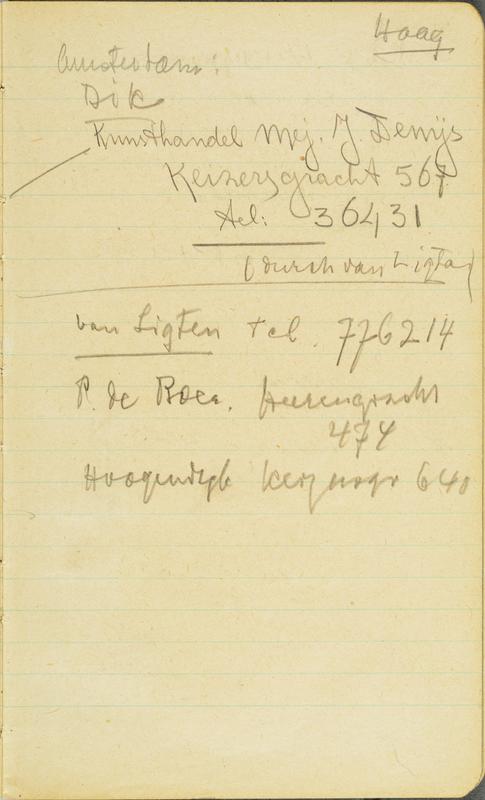 Haag
Amsterdam:
Dik
Kunsthandel Mej. J. Denijs
Keizersgracht 567
Tel: 36431
(durch van Ligten)
van Ligten tel. 776214
P. de Boer. Heerengracht
474
Hoogendijk Keizersgr 640